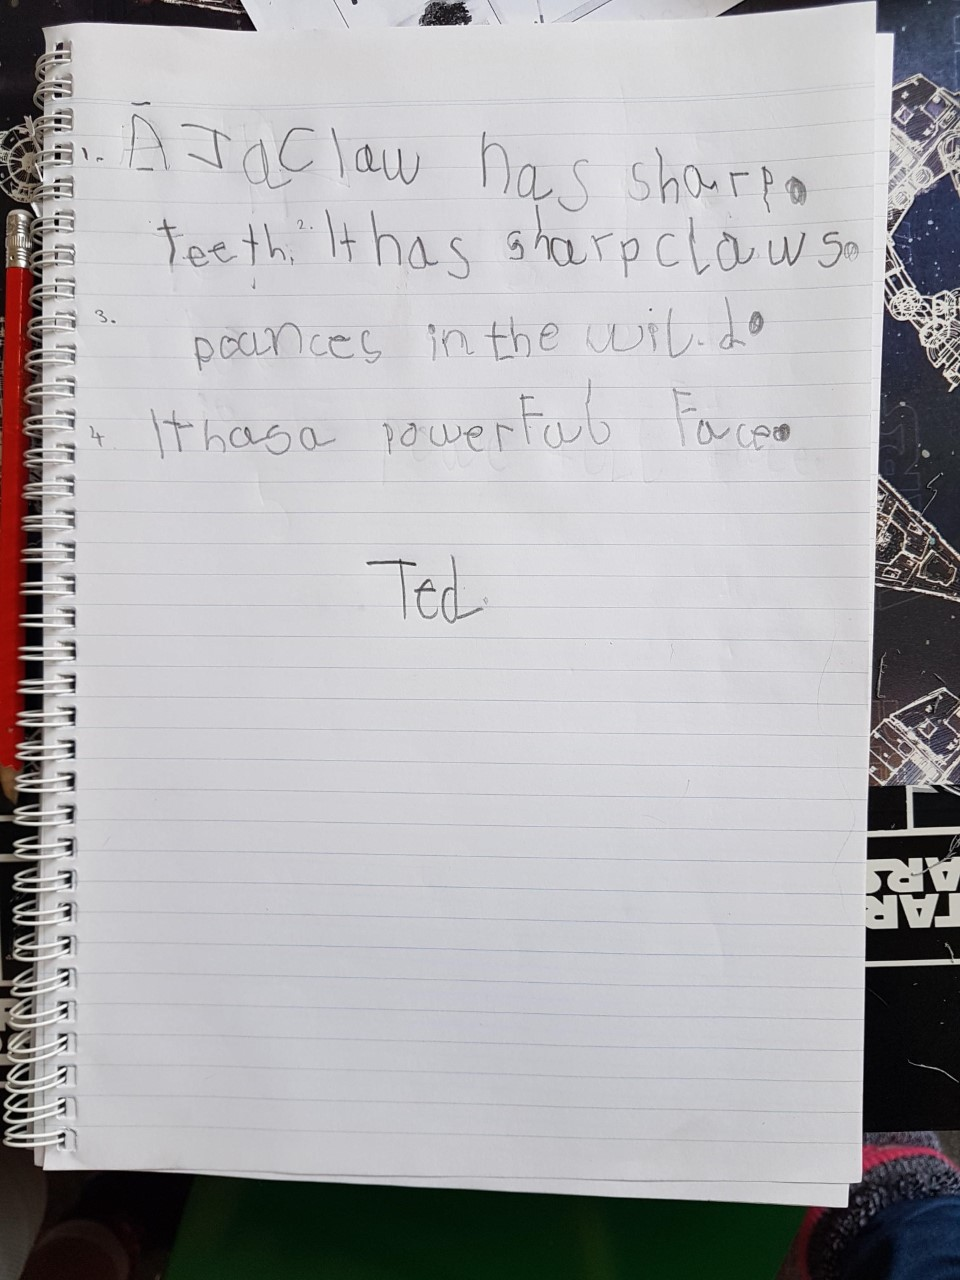 1. A JaClaw has sharp.
teeth. 2. It has sharp claws.
3. pounces in the wil.d.
4. It has a powerful Face.
Ted.
STAR
WARS